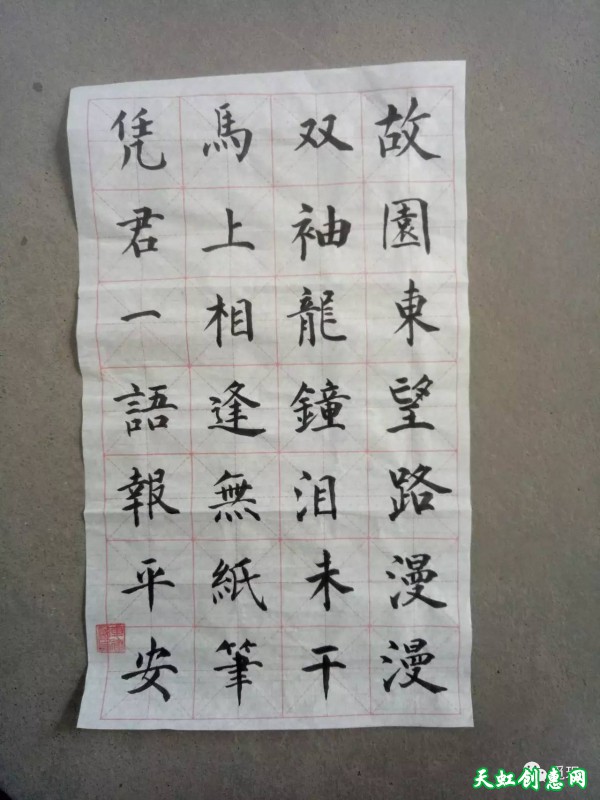 故園東望路漫漫
双袖龍鐘泪未干
馬上相逢無紙筆
凭君一語報平安
天虹创惠网